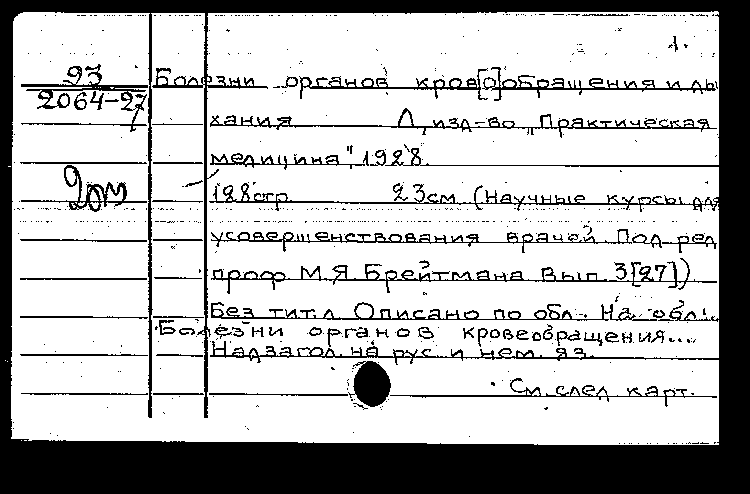 1.
93
2064-27
Болезни органов кров[о]обращения и ды
хания Л, изд-во „Практическая
медицина", 1928.
128стр. 23см (Научные курсы для
усовершенствования врачей Под ред
проф М.Я Брейтмана Вып. 3[27])
Без тит.л Описано по обл. На обл:..
Болезни органов кровеобращения...
Надзагол. на рус и нем. яз.
См. след карт.